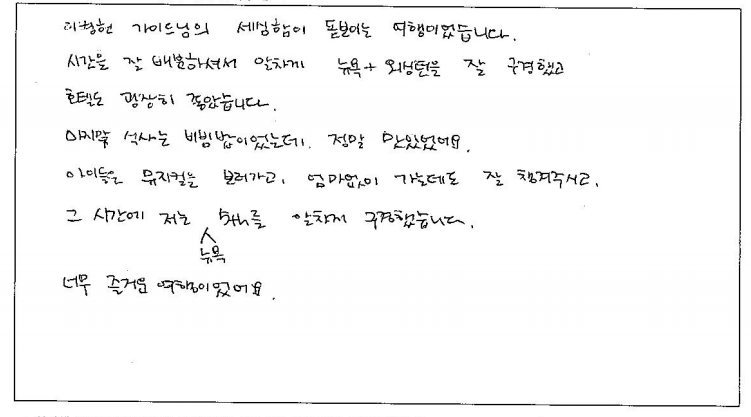 가이드님의 세심함이 돋보이는 여행이었습니다.
시간을 잘 배분하셔서 알차게 뉴욕+워싱턴을 잘 구경했고
호텔도 굉장히 좋았습니다.
마지막 석사는 비빔밥이었는데, 정말 맛있었어요.
아이들은 뮤지컬을 보러가고, 엄마없이 가는데도 잘 챙겨주시고,
그 시간에 저는 5th를 알차게 구경했습니다.
뉴욕
너무 즐거운 여행이었어요.